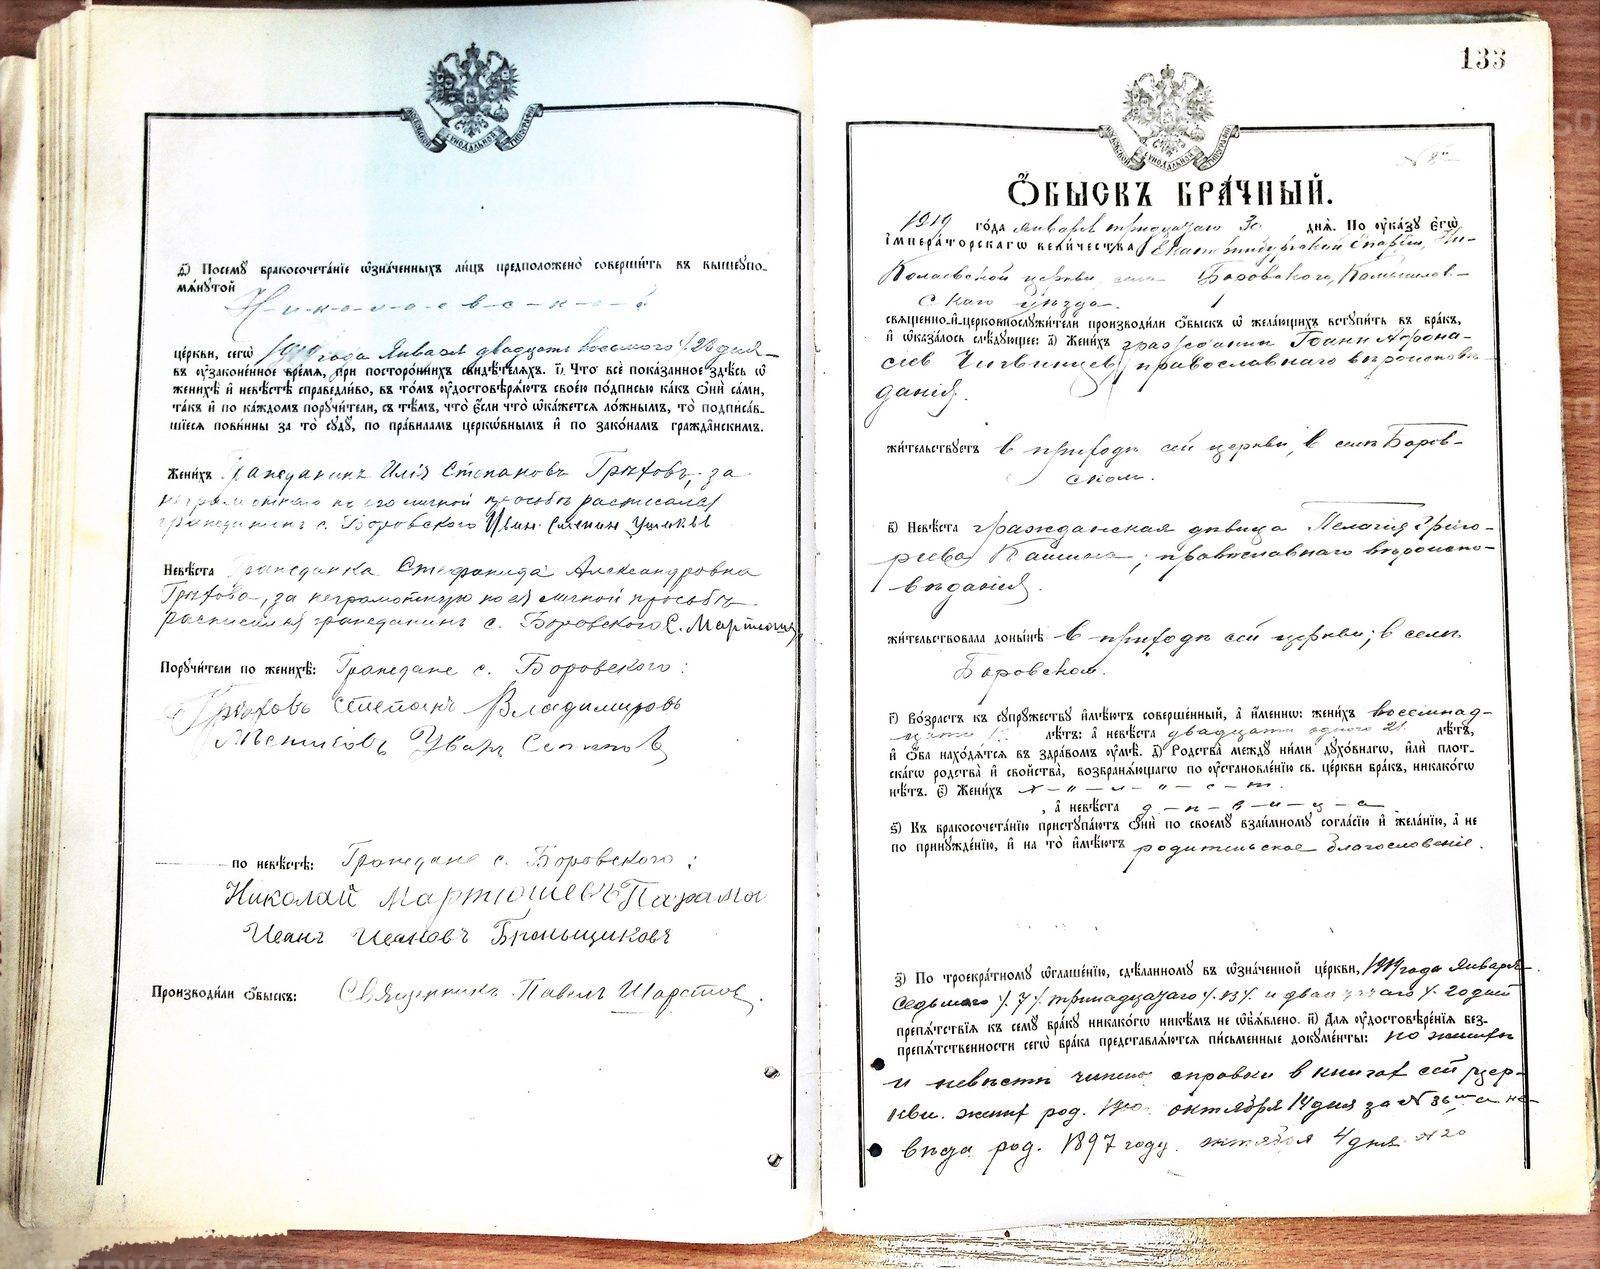 МОСКОВСКОЙ СѴНОДАЛЬНОЙ ТИПОГРАФІИ
д҃) Посемꙋ̀ бракосочета́нїе ѡ҆зна́ченныхъ ли́цъ предположено̀ соверши́ть въ вышеꙋпо-
мѧ́нꙋтой
Н-и-к-о-л-а-е-в-с-к-о-й
це́ркви, сегѡ̀ 1919 года Января двадцать восьмого /28 дня
въ ᲂу҆зако́ненное вре́мя, при посторо́ннихъ свидѣ́телѧхъ. і҃) Что̀ всѐ пока́занное здѣ́сь ѡ҆
женихѣ̀ и҆ невѣ́стѣ справедли́во, въ то́мъ ᲂу҆достовѣрѧ́ютъ свое́ю по́дписью ка́къ ѻ҆нѝ са́ми,
та́къ и҆ по ка́ждомъ порꙋчи́тели, съ тѣ́мъ, что̀ є҆́сли что̀ ѡ҆ка́жется ло́жнымъ, то̀ подписа́в-
шїеся пови́нны за то̀ сꙋдꙋ̀, по пра́виламъ церкѡ́внымъ и҆ по зако́намъ гражда́нскимъ.
Жени́хъ Гражданинъ Илія Степановъ Грѣховъ, за
неграмотнаго по его личной просьбѣ расписался
гражданинъ с. Боровского Иван
Невѣ́ста Гражданка Стефанида Александровна
Грѣхова, за неграмотную по ея личной просьбѣ
расписался гражданинъ с. Боровского С. Мартюшев
Порꙋчи́тели по женихѣ̀: Граждане с. Боровского:
Грѣховъ Степанъ Владимировъ
Мѣтиковъ Уваръ
по невѣ́стѣ: Граждане с. Боровского:
Николай Мартюшевъ
Иванъ Ивановъ Бронщиковъ
Производи́ли ѻ҆́быскъ: Священникъ Павелъ Шарстов
133
МОСКОВСКОЙ СѴНОДАЛЬНОЙ ТИПОГРАФІИ
№ 8й
Ѻ҆́БЫСКЪ БРА́ЧНЫЙ.
1919 го́да января тридцатаго 30 днѧ̀. По ᲂу҆ка́зꙋ є҆гѡ̀
і҆мпера́торскагѡ вели́чества Екатеринбургской Епархіи, Ни-
колаевской церкви села Боровского, Камышлов-
скаго уѣзда.
свѧще́нно-и҆-церко́внослꙋжи́тели производи́ли ѻ҆́быскъ ѡ҆ жела́ющихъ встꙋпи́ть въ бра́къ,
и҆ ѡ҆каза́лось слѣ́дꙋющее: а҃) Жени́хъ гражданин Іоанн Афона-
сіев Чигвинцев, православнаго вѣроисповѣ-
данія.
жи́тельствꙋетъ в приходѣ сей церкви, в селѣ Боров-
ском.
в҃) Невѣ́ста гражданская дѣвица Пелагія Григо-
рьева Кашина, православнаго вѣроиспо-
вѣданія.
жи́тельствовала доны́нѣ в приходѣ сей церкви; в селѣ
Боровском.
г҃) Во́зрастъ къ сꙋпрꙋ́жествꙋ и҆мѣ́ютъ соверше́нный, а҆ и҆́меннѡ: жени́хъ восемнад-
цати лѣ́тъ: а҆ невѣ́ста двадцати одного 21 лѣ́тъ,
и҆ ѻ҆́ба нахо́дѧтся въ здра́вомъ ᲂу҆мѣ̀. д҃) Родства̀ междꙋ ни́ми дꙋхо́внагѡ, и҆лѝ плот-
ска́гѡ родства̀ и҆ сво́йства, возбранѧ́ющагѡ по ᲂу҆становле́нїю св. це́ркви бра́къ, никако́гѡ
нѣ́тъ. є҃) Жени́хъ х-о-л-о-с-т.
, а҆ невѣ́ста д-ѣ-в-и-ц-а
ѕ҃) Къ бракосочета́нїю пристꙋпа́ютъ ѻ҆нѝ по своемꙋ̀ взаи́мномꙋ согла́сїю и҆ жела́нїю, а҆ не
по принꙋжде́нїю, и҆ на то̀ и҆мѣ́ютъ родительское благословеніе.
з҃) По троекра́тномꙋ ѡ҆глаше́нїю, сдѣ́ланномꙋ въ ѡ҆зна́ченной це́ркви, 1919 года Января
седьмого /7/ тринадцатаго /13/ и двадцатаго /20 дней
препѧ́тствїя къ семꙋ̀ бра́кꙋ никако́гѡ никѣ́мъ не ѡ҆б̾ѧ́влено. и҃) Для ᲂу҆достовѣре́нїя без-
препѧ́тственности сегѡ̀ бра́ка представлѧ́ются пи́сьменные докꙋме́нты: по женихѣ
и невѣстѣ чинены справки в книгах сей цер-
кви. жених род. 1900 октября 14 дня за № 36м а не-
вѣста род. 1897 году октября 4 дня №20